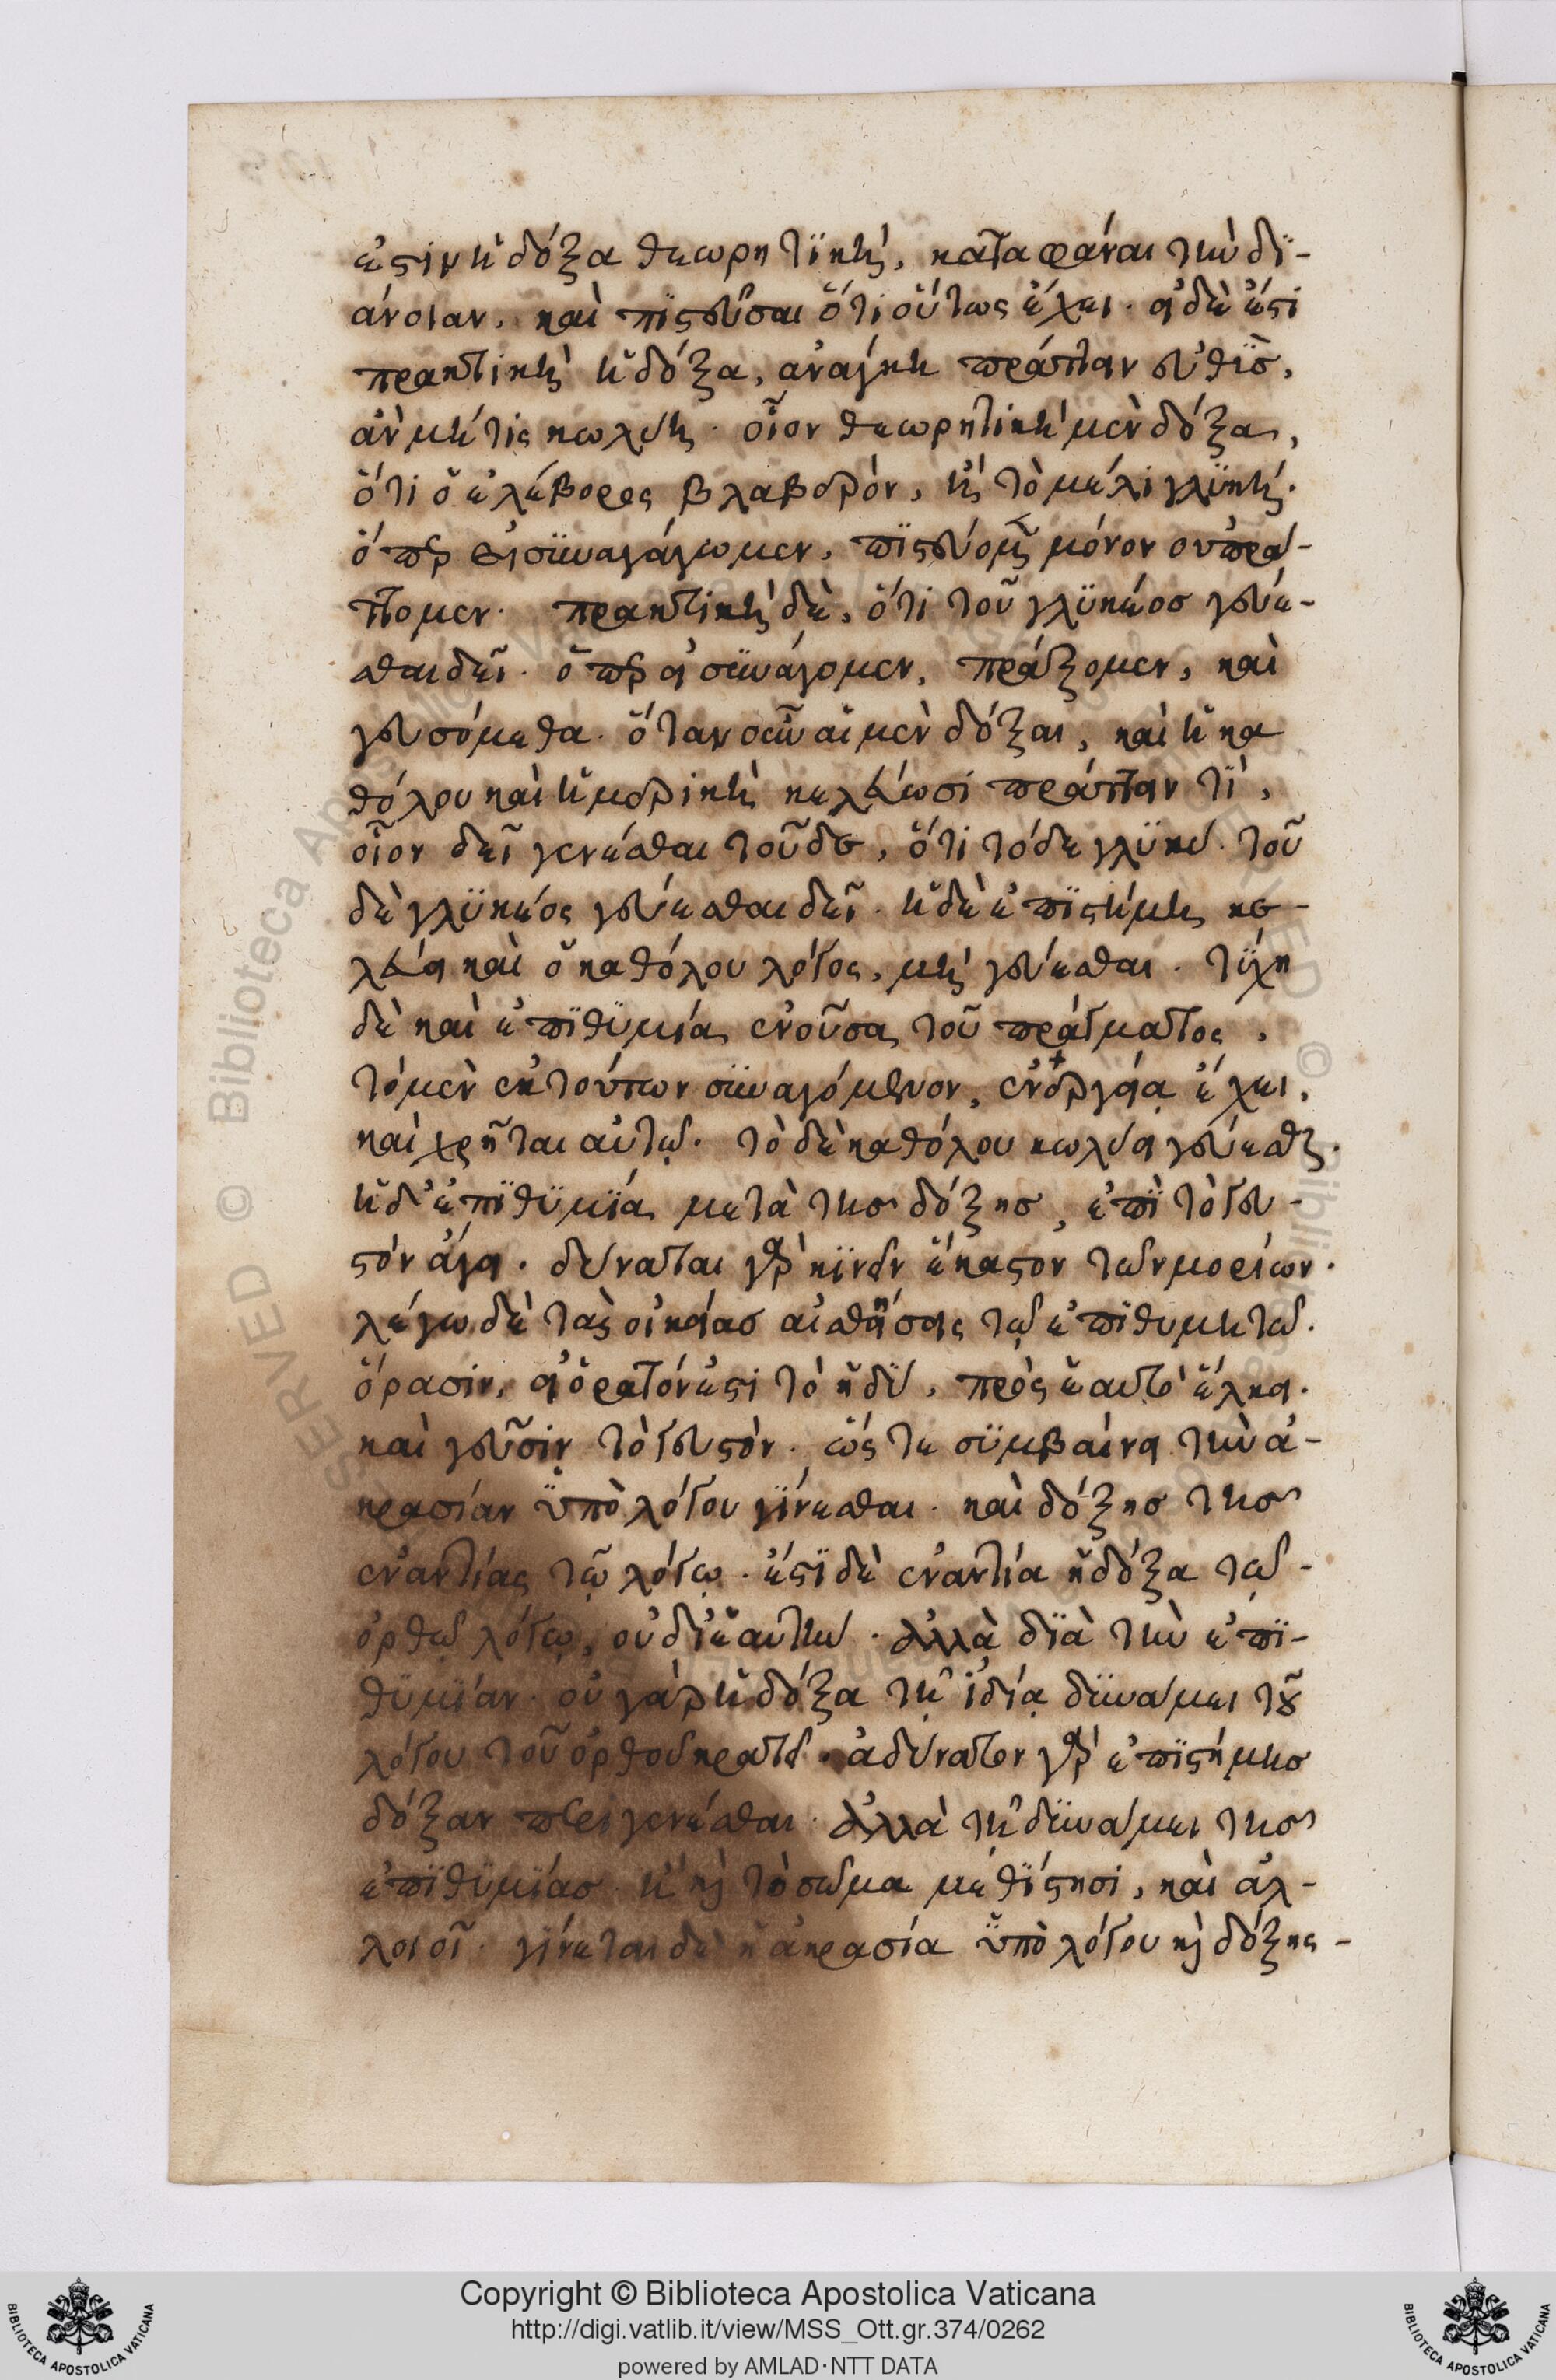 ἐστὶν ἡ δόξα θεωρητικὴ, καταφάναι τὴν δι-
άνοιαν, καὶ πιστεῦσαι ὅτι οὕτως ἔχει. εἰ δὲ ἐστὶ
πρακτικὴ ἡ δόξα, ἀνάγκη πράττειν εὐθὺς,
ἂν μή τις κωλύῃ. οἷον θεωρητικὴ μὲν δόξα,
ὅτι ὁ ἐλέβορος βλαβερὸν, ἢ τὸ μέλι γλυκύ.
ὅπερ εἰ συναγάγωμεν, πιστεύομεν μόνον οὐ πρά-
ττομεν. πρακτικὴ δὲ, ὅτι τοῦ γλυκέος γεύε-
σθαι δεῖ. ὅπερ εἰ συνάγομεν, πράξομεν, καὶ
γευσόμεθα. ὅταν οὖν αἱ μὲν δόξαι, καὶ ἡ κα
θόλου καὶ ἡ μερικὴ κελεύωσι πράττειν τί,
οἷον δεῖ γενέσθαι τοῦδε, ὅτι τόδε γλυκύ. τοῦ
δὲ γλυκέος γεύεσθαι δεῖ. ἡ δὲ ἐπιστήμη κε-
λεύει καὶ ὁ καθόλου λόγος, μὴ γεύεσθαι. τύχῃ
δὲ καὶ ἐπιθυμία ἐνοῦσα τοῦ πράγματος,
τὸ μὲν ἐκ τούτων συναγόμενον, ἐνέργεια ἔχει,
καὶ χρῆται αὐτῷ. τὸ δὲ καθόλου κωλύει γεύεσθαι.
ἡ δ' ἐπιθυμία μετὰ τῆς δόξης, ἐπὶ τὸ γευ-
στὸν ἄγει. δύναται γὰρ κινεῖν ἕκαστον τῶν μορίων.
λέγω δὲ τὰς οἰκείας αἰσθήσεις τῷ ἐπιθυμητῷ.
ὅρασιν, εἰ ὁρατόν ἐστι τὸ ἡδύ, πρὸς ἑαυτὸ ἕλκει.
καὶ γεῦσιν τὸ γευστόν. ὥστε συμβαίνει τὴν ἀ-
κρασίαν ὑπὸ λόγου γίνεσθαι. καὶ δόξης τῆς
ἐναντίας τῷ λόγῳ. ἔστι δὲ ἐναντία ἡ δόξα τῷ
ὀρθῷ λόγῳ, οὐ δι' ἑαυτὴν. ἀλλὰ διὰ τὴν ἐπι-
θυμίαν. οὐ γὰρ ἡ δόξα τῇ ἰδίᾳ δυνάμει τοῦ
λόγου τοῦ ὀρθοῦ κρατεῖ. ἀδύνατον γὰρ ἐπιστήμης
δόξαν περιγενέσθαι. ἀλλὰ τῇ δυνάμει τῆς
ἐπιθυμίας. ἣ καὶ τὸ σῶμα μεθίστησι, καὶ ἀλ-
λοιοῖ. γίνεται δὲ ἡ ἀκρασία ὑπὸ λόγου καὶ δόξης -
Copyright © Biblioteca Apostolica Vaticana
http://digi.vatlib.it/view/MSS_Ott.gr.374/0262
powered by AMLAD·NTT DATA